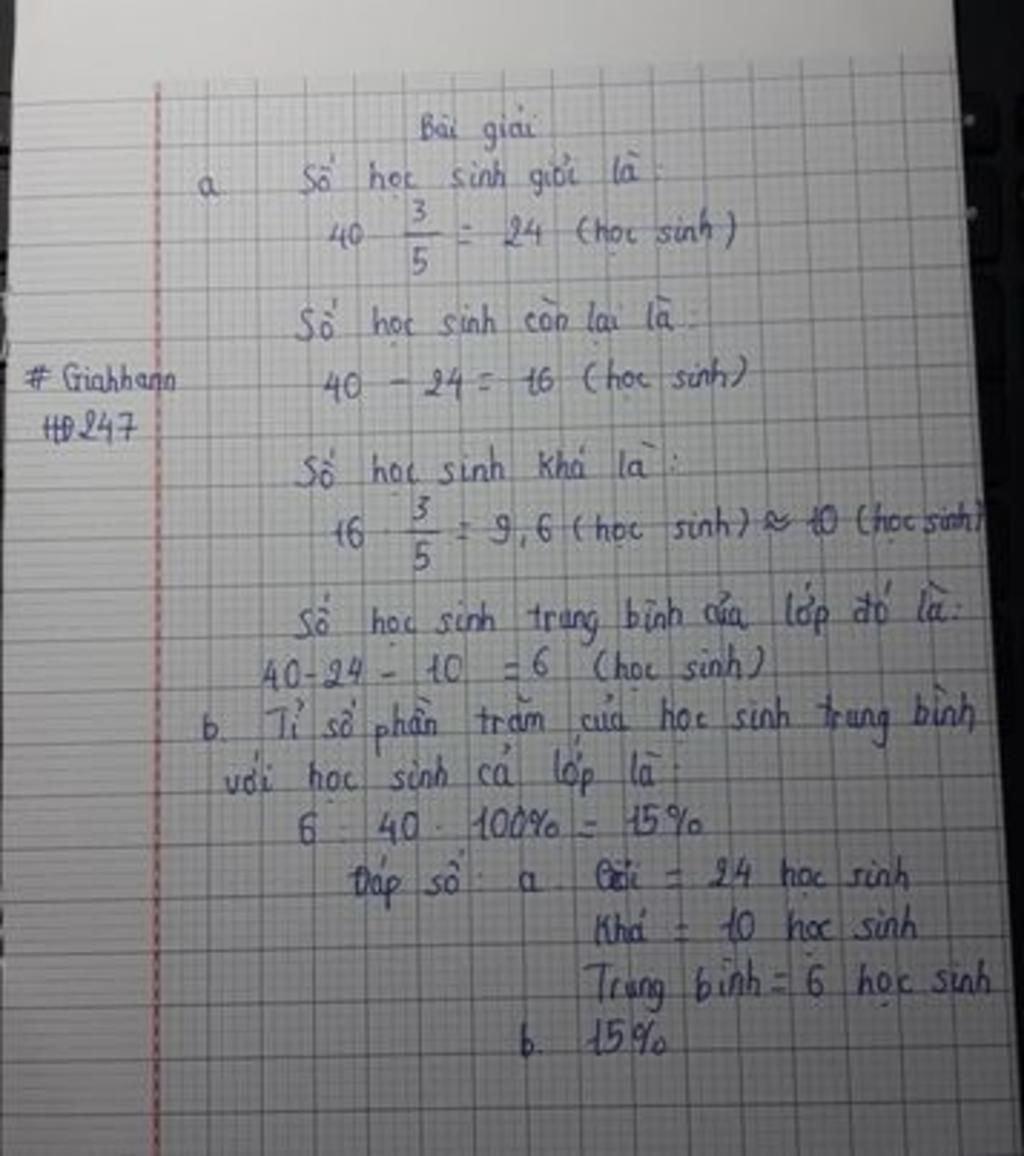 Bài giải
a. Số học sinh giỏi là:
40 . 3/5 = 24 (học sinh)
Số học sinh còn lại là:
40 - 24 = 16 (học sinh)
# Giahhann
HĐ247
Số học sinh khá là:
16 . 3/5 = 9,6 (học sinh) ≈ 10 (học sinh)
Số học sinh trung bình của lớp đó là:
40-24 - 10 = 6 (học sinh)
b. Tỉ số phần trăm của học sinh trung bình
với học sinh cả lớp là:
6 : 40 . 100% = 15%
Đáp số: a. Giỏi = 24 học sinh
Khá = 10 học sinh
Trung bình = 6 học sinh
b. 15%